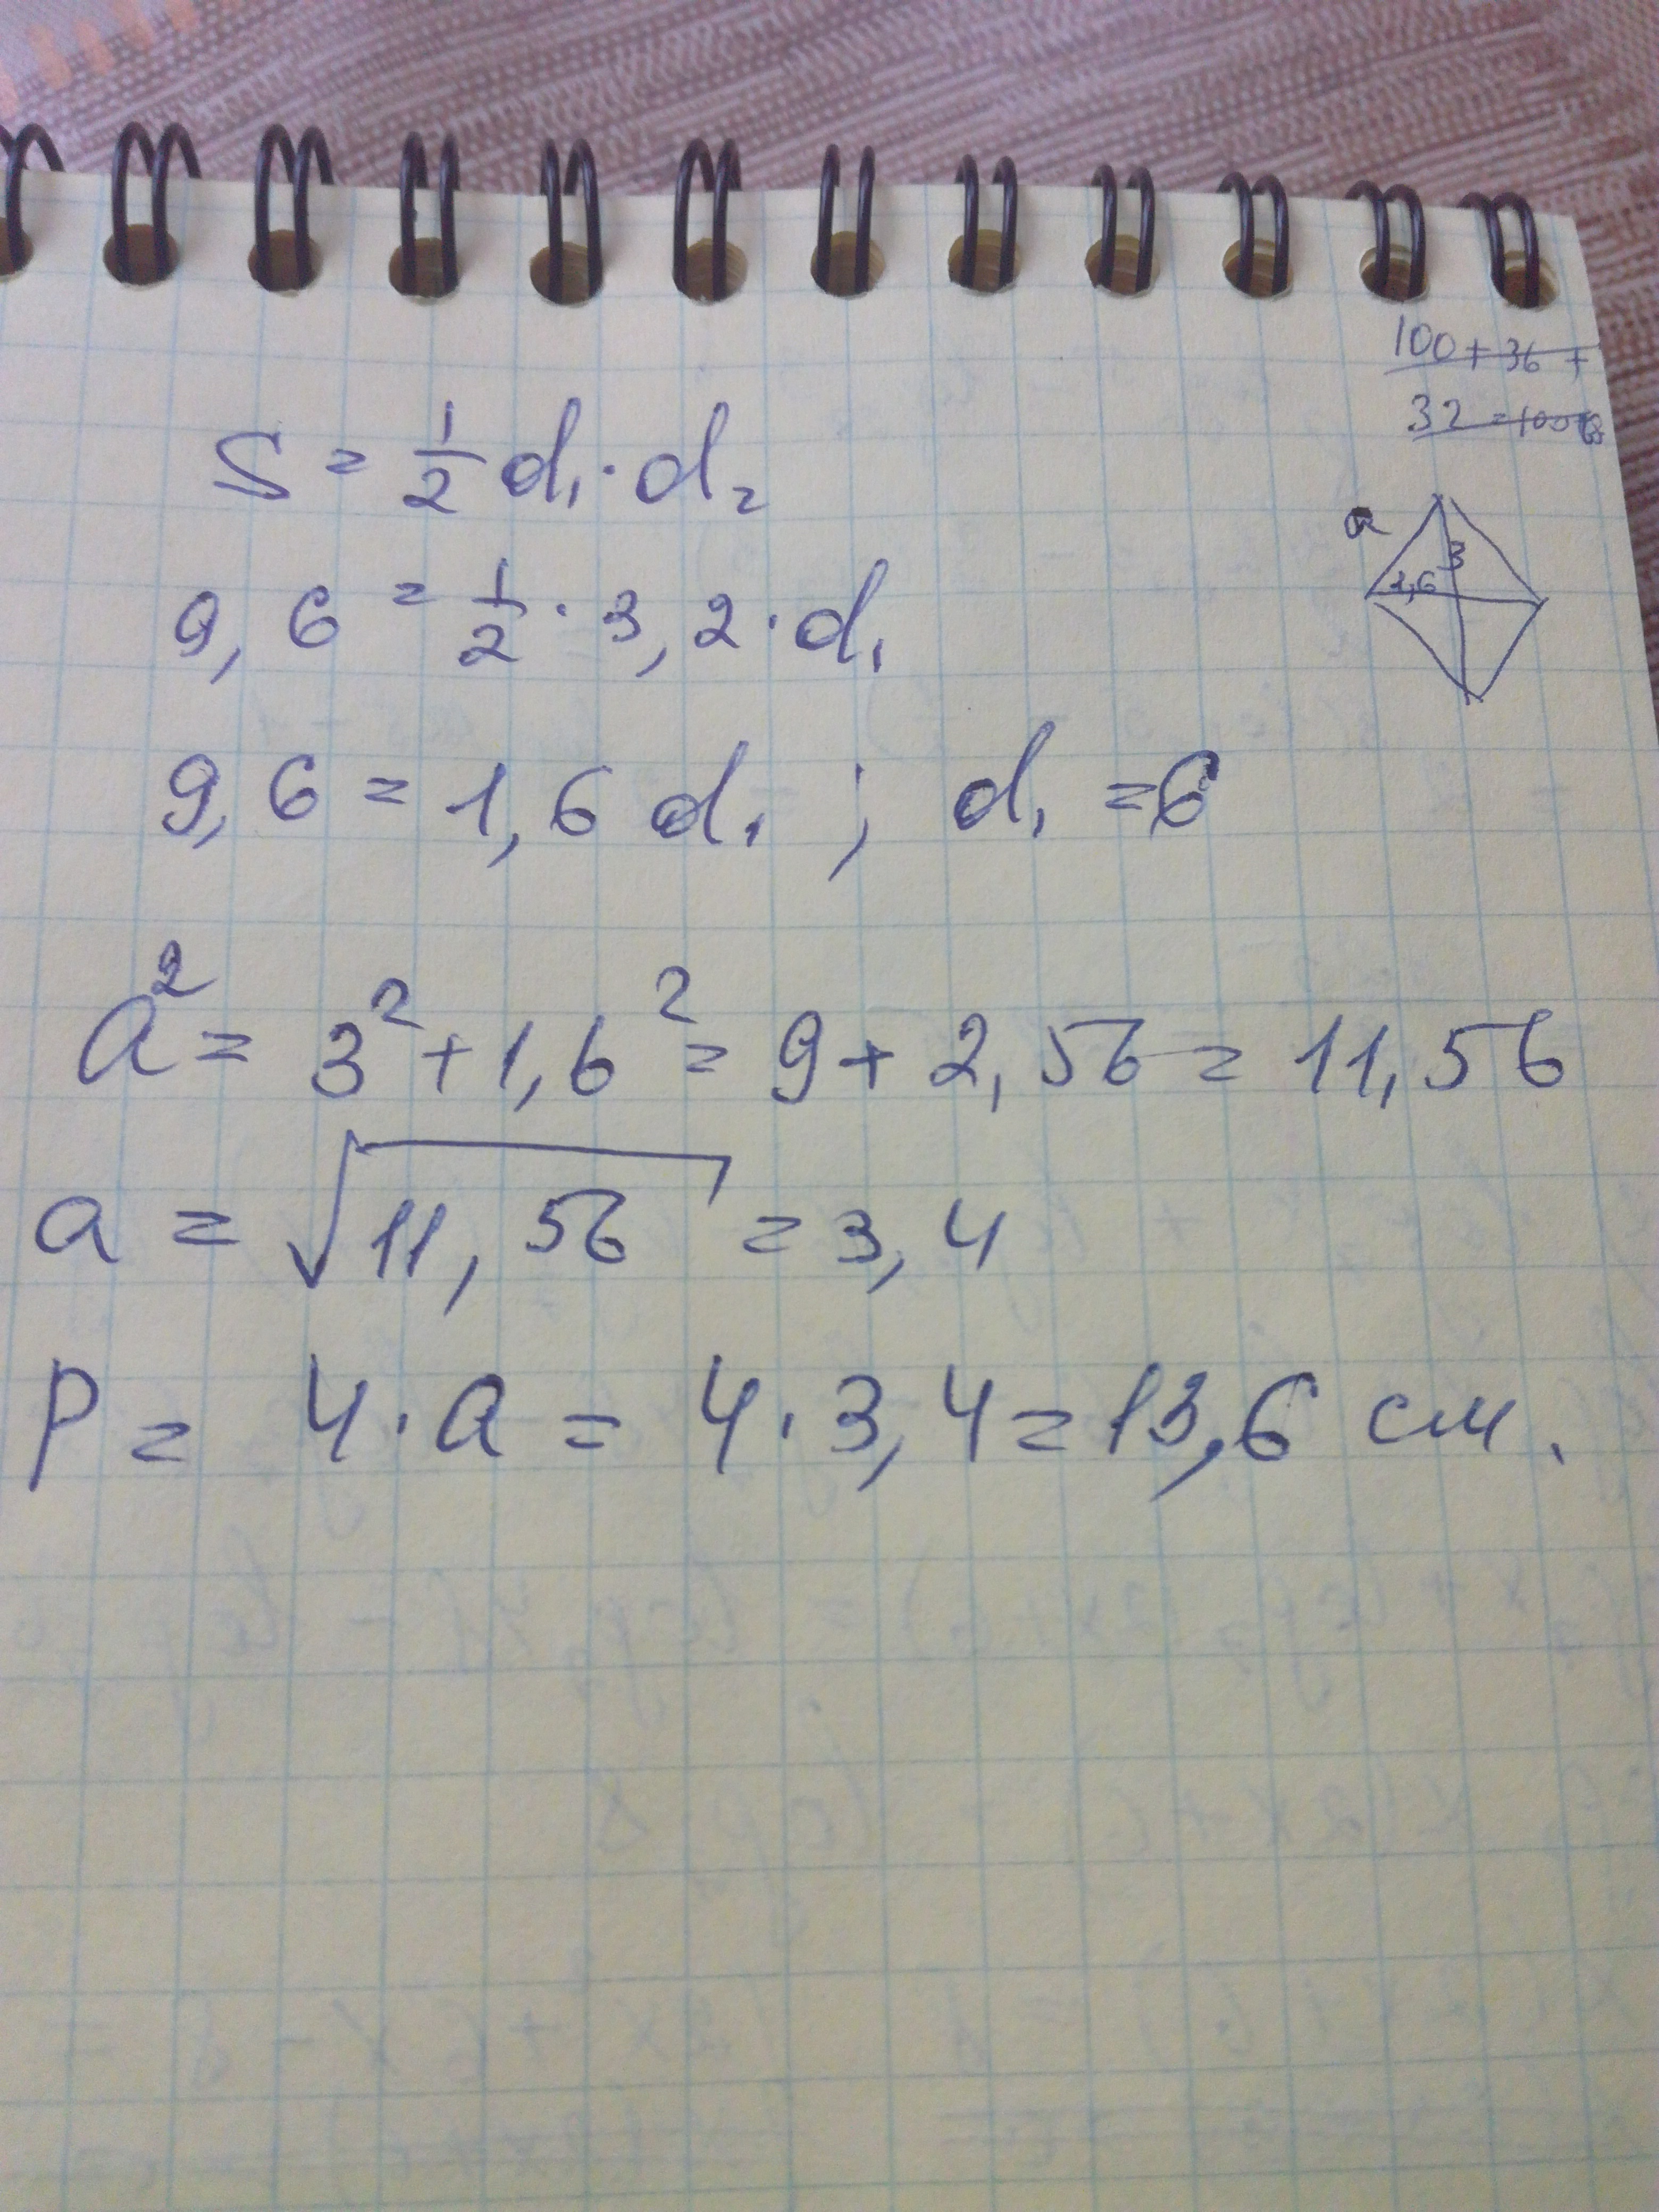 100 + 36 +
32 =
S = 1/2 d₁ · d₂
a
3
1,6
9,6 = 1/2 · 3,2 · d₁
9,6 = 1,6 d₁ ; d₁ = 6
a² = 3² + 1,6² = 9 + 2,56 = 11,56
a = √11,56 = 3,4
P = 4 · a = 4 · 3,4 = 13,6 см.